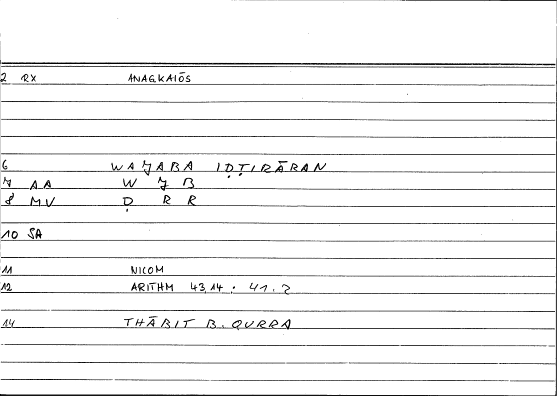 2 RX ANAGKAIŌS
6 WAJABA IḌṬIRĀRAN
7 AA W J B
8 MV Ḍ R R
10 SA
11 NICOM
12 ARITHM 43,14 · 41.2
14 THĀBIT B. QURRA